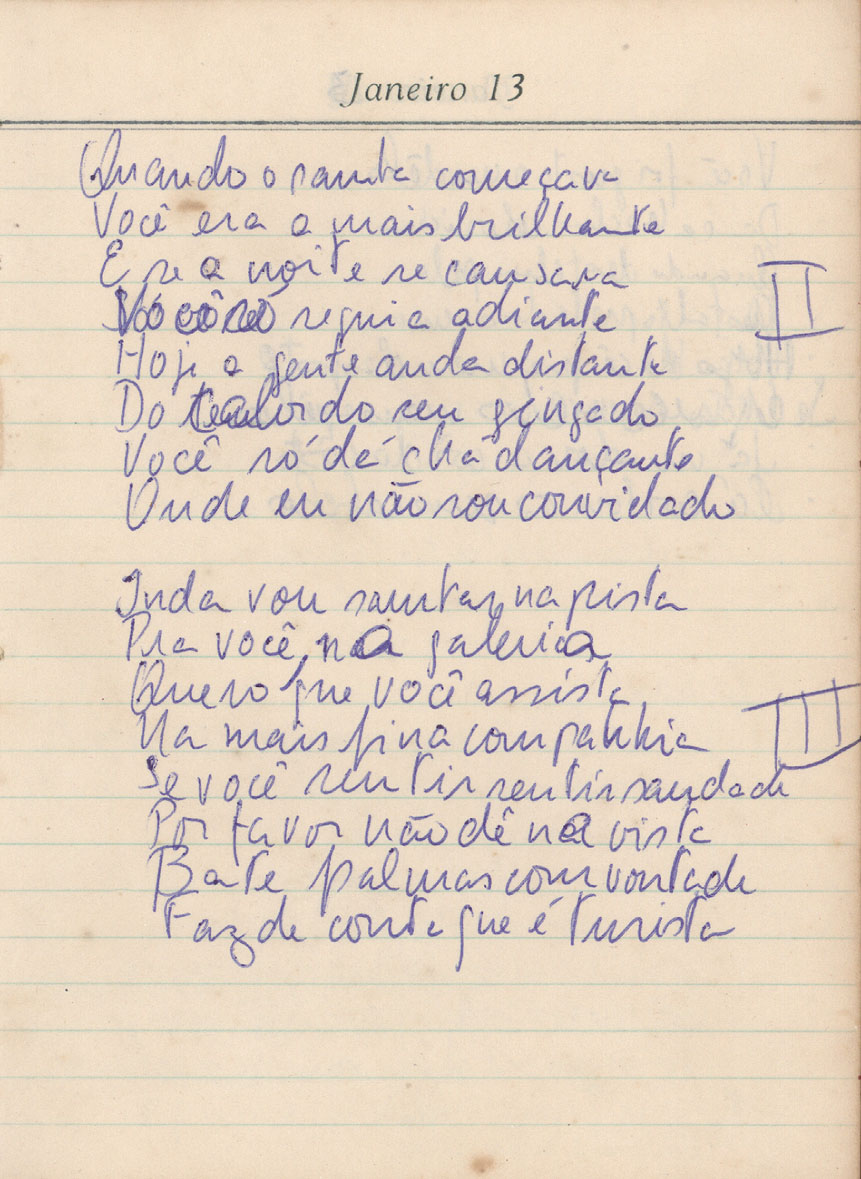 Janeiro 13
Quando o samba começava
Você era a mais brilhante
E se a noite se cansava
II
Você só seguia adiante
Hoje a gente anda distante
Do calor do seu gingado
Você só dá chá dançante
Onde eu não sou convidado
Inda vou sambar na pista
Pra você, na galeria
Quero que você assista
III
Na mais fina companhia
Se você sentir sentir saudade
Por favor não dê na vista
Bate palmas com vontade
Faz de conta que é turista